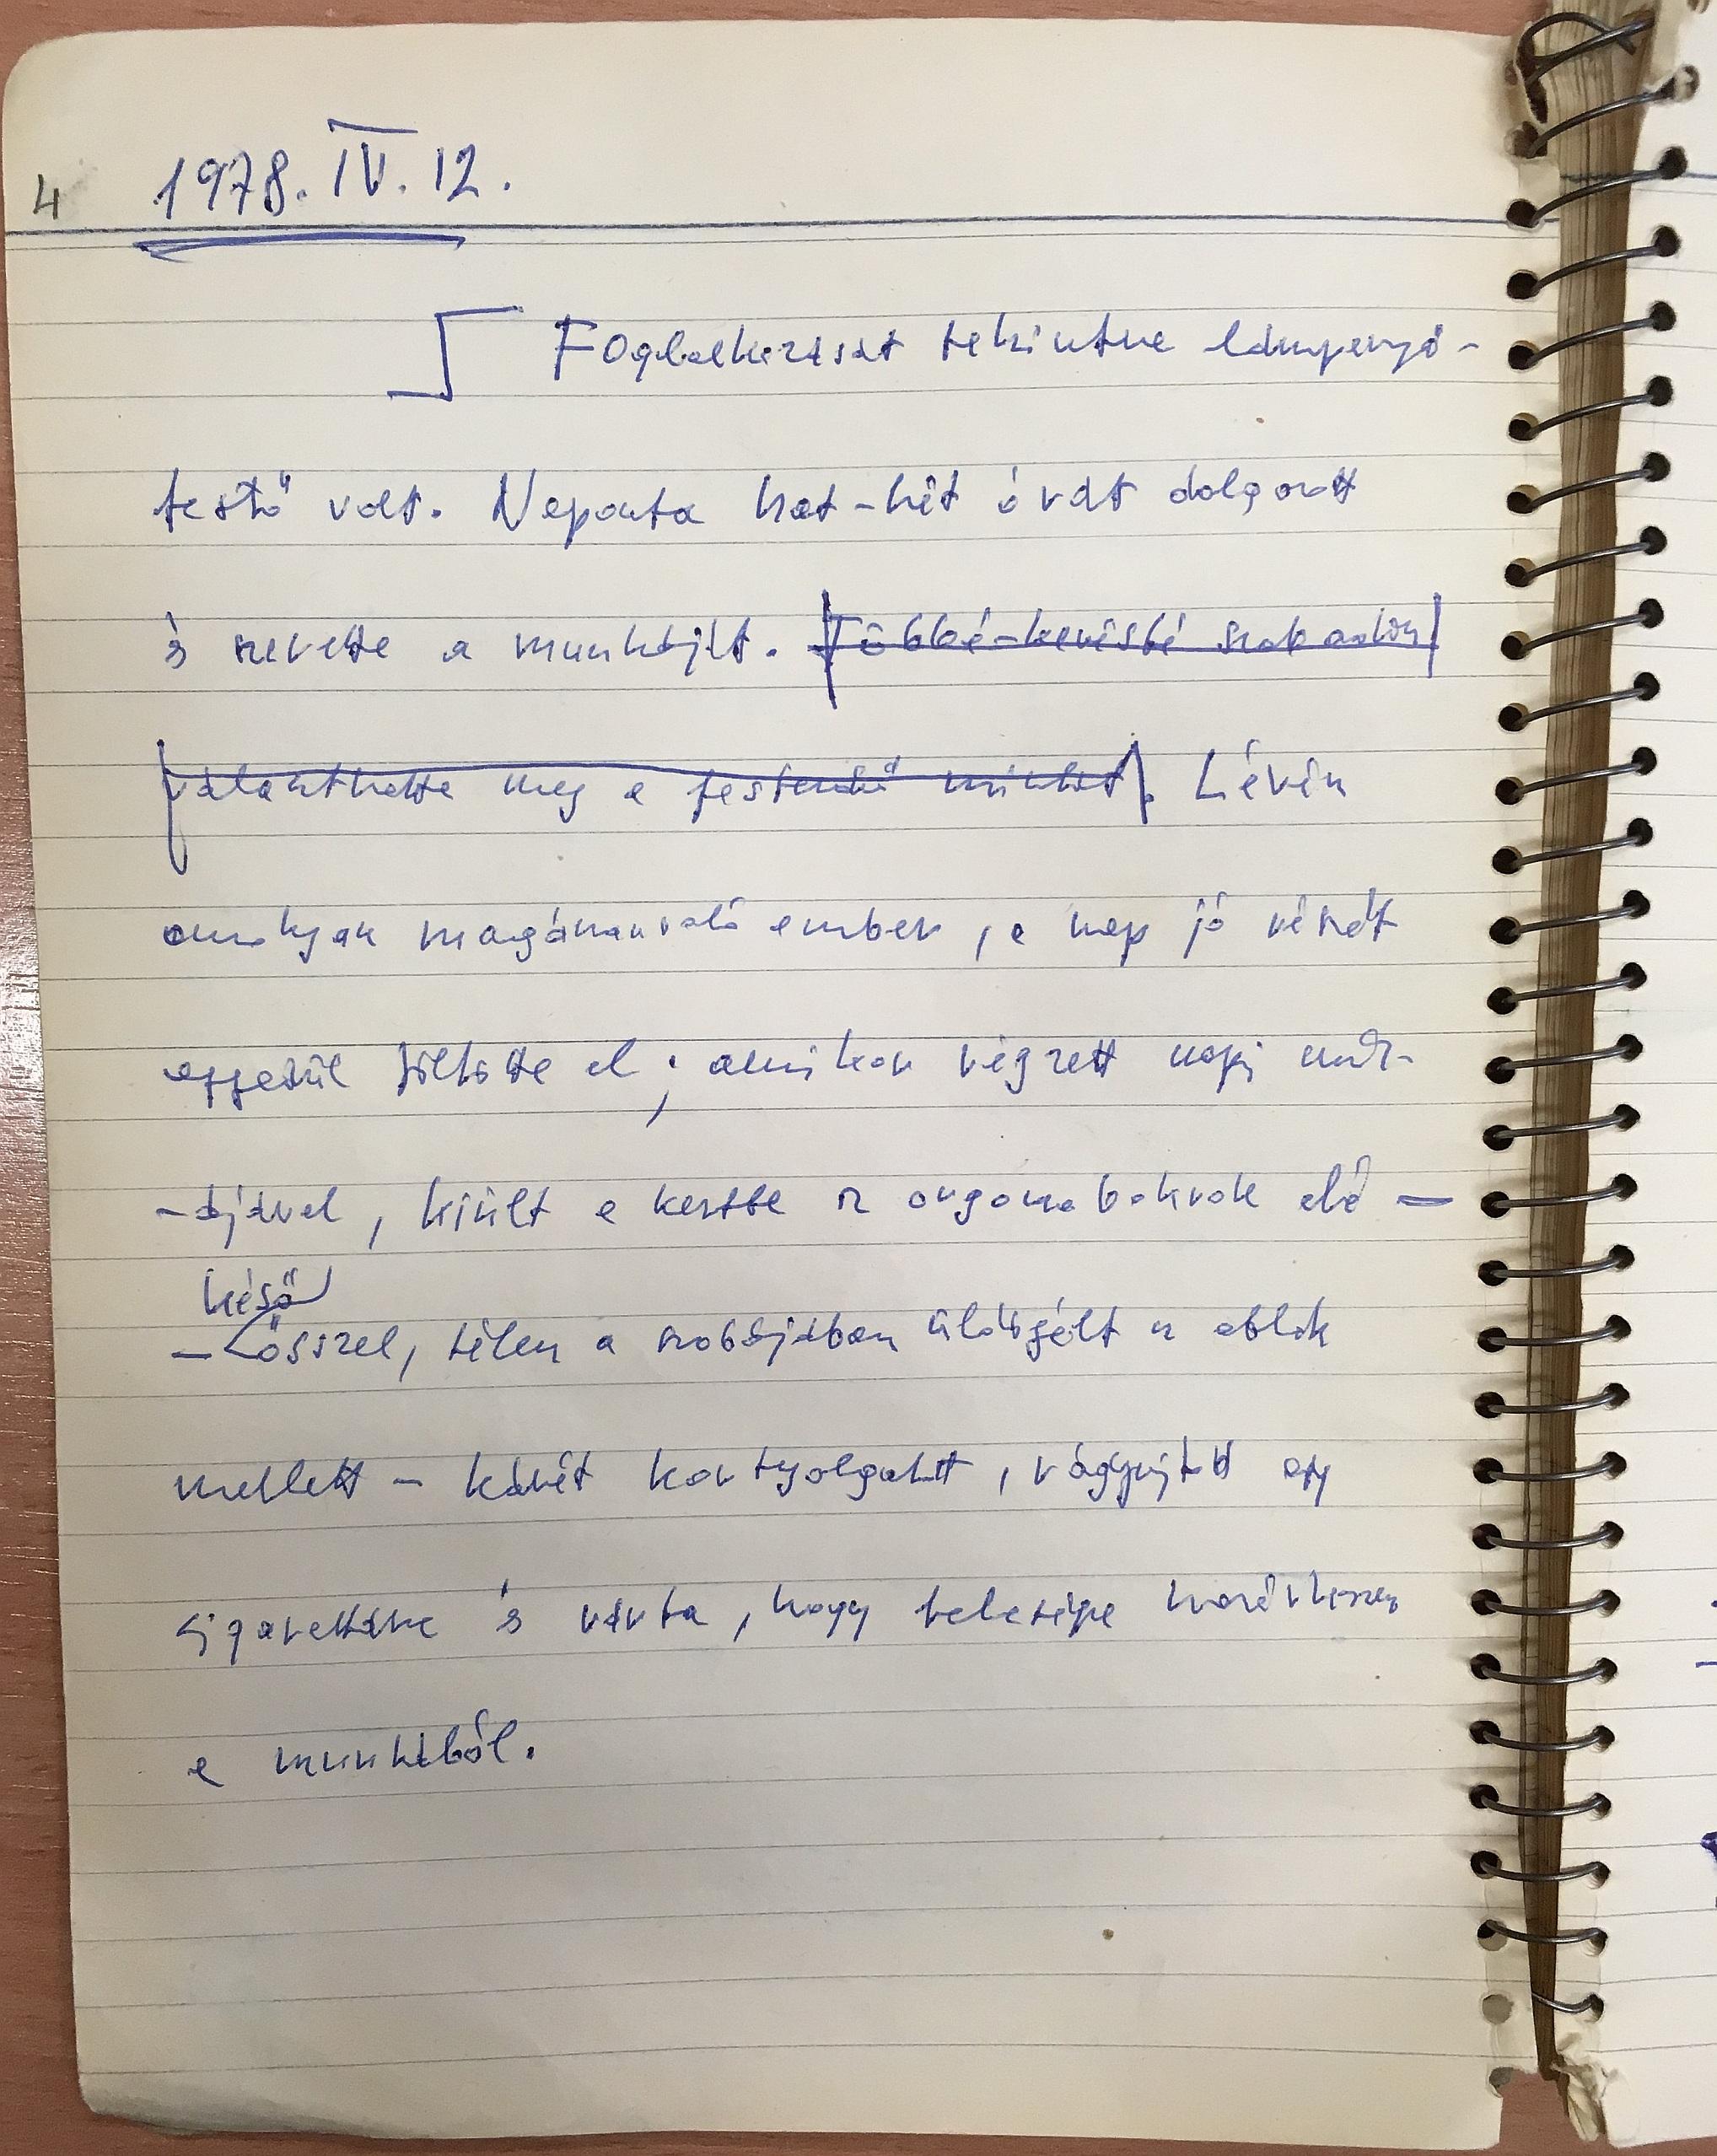 4 1978. IV. 12.
Foglalkozását tekintve lámpernyő-
festő volt. Naponta hat-hét órát dolgozott
és szerette a munkáját. Többé-kevésbé szabadon
választhatta meg a festendő mintát. Lévén
amolyan magánakvaló ember, a nap jó részét
egyedül töltötte el; amikor végzett napi
kiült a kertbe az orgonabokrok elé –
késő
– ősszel, télen a szobájában üldögélt az ablak
mellett – kávét kortyolgatott, rágyújtott egy
cigarettára és várta, hogy felesége hazaérkezzen
a munkából.